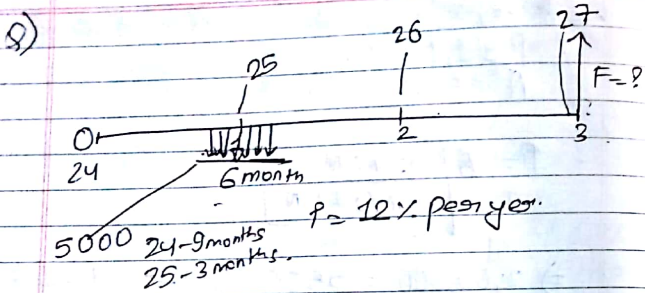 Q)
27
26
25
F=?
0
2
3
24
6 month
5000
24-9months
25-3 months.
P= 12% per yer.